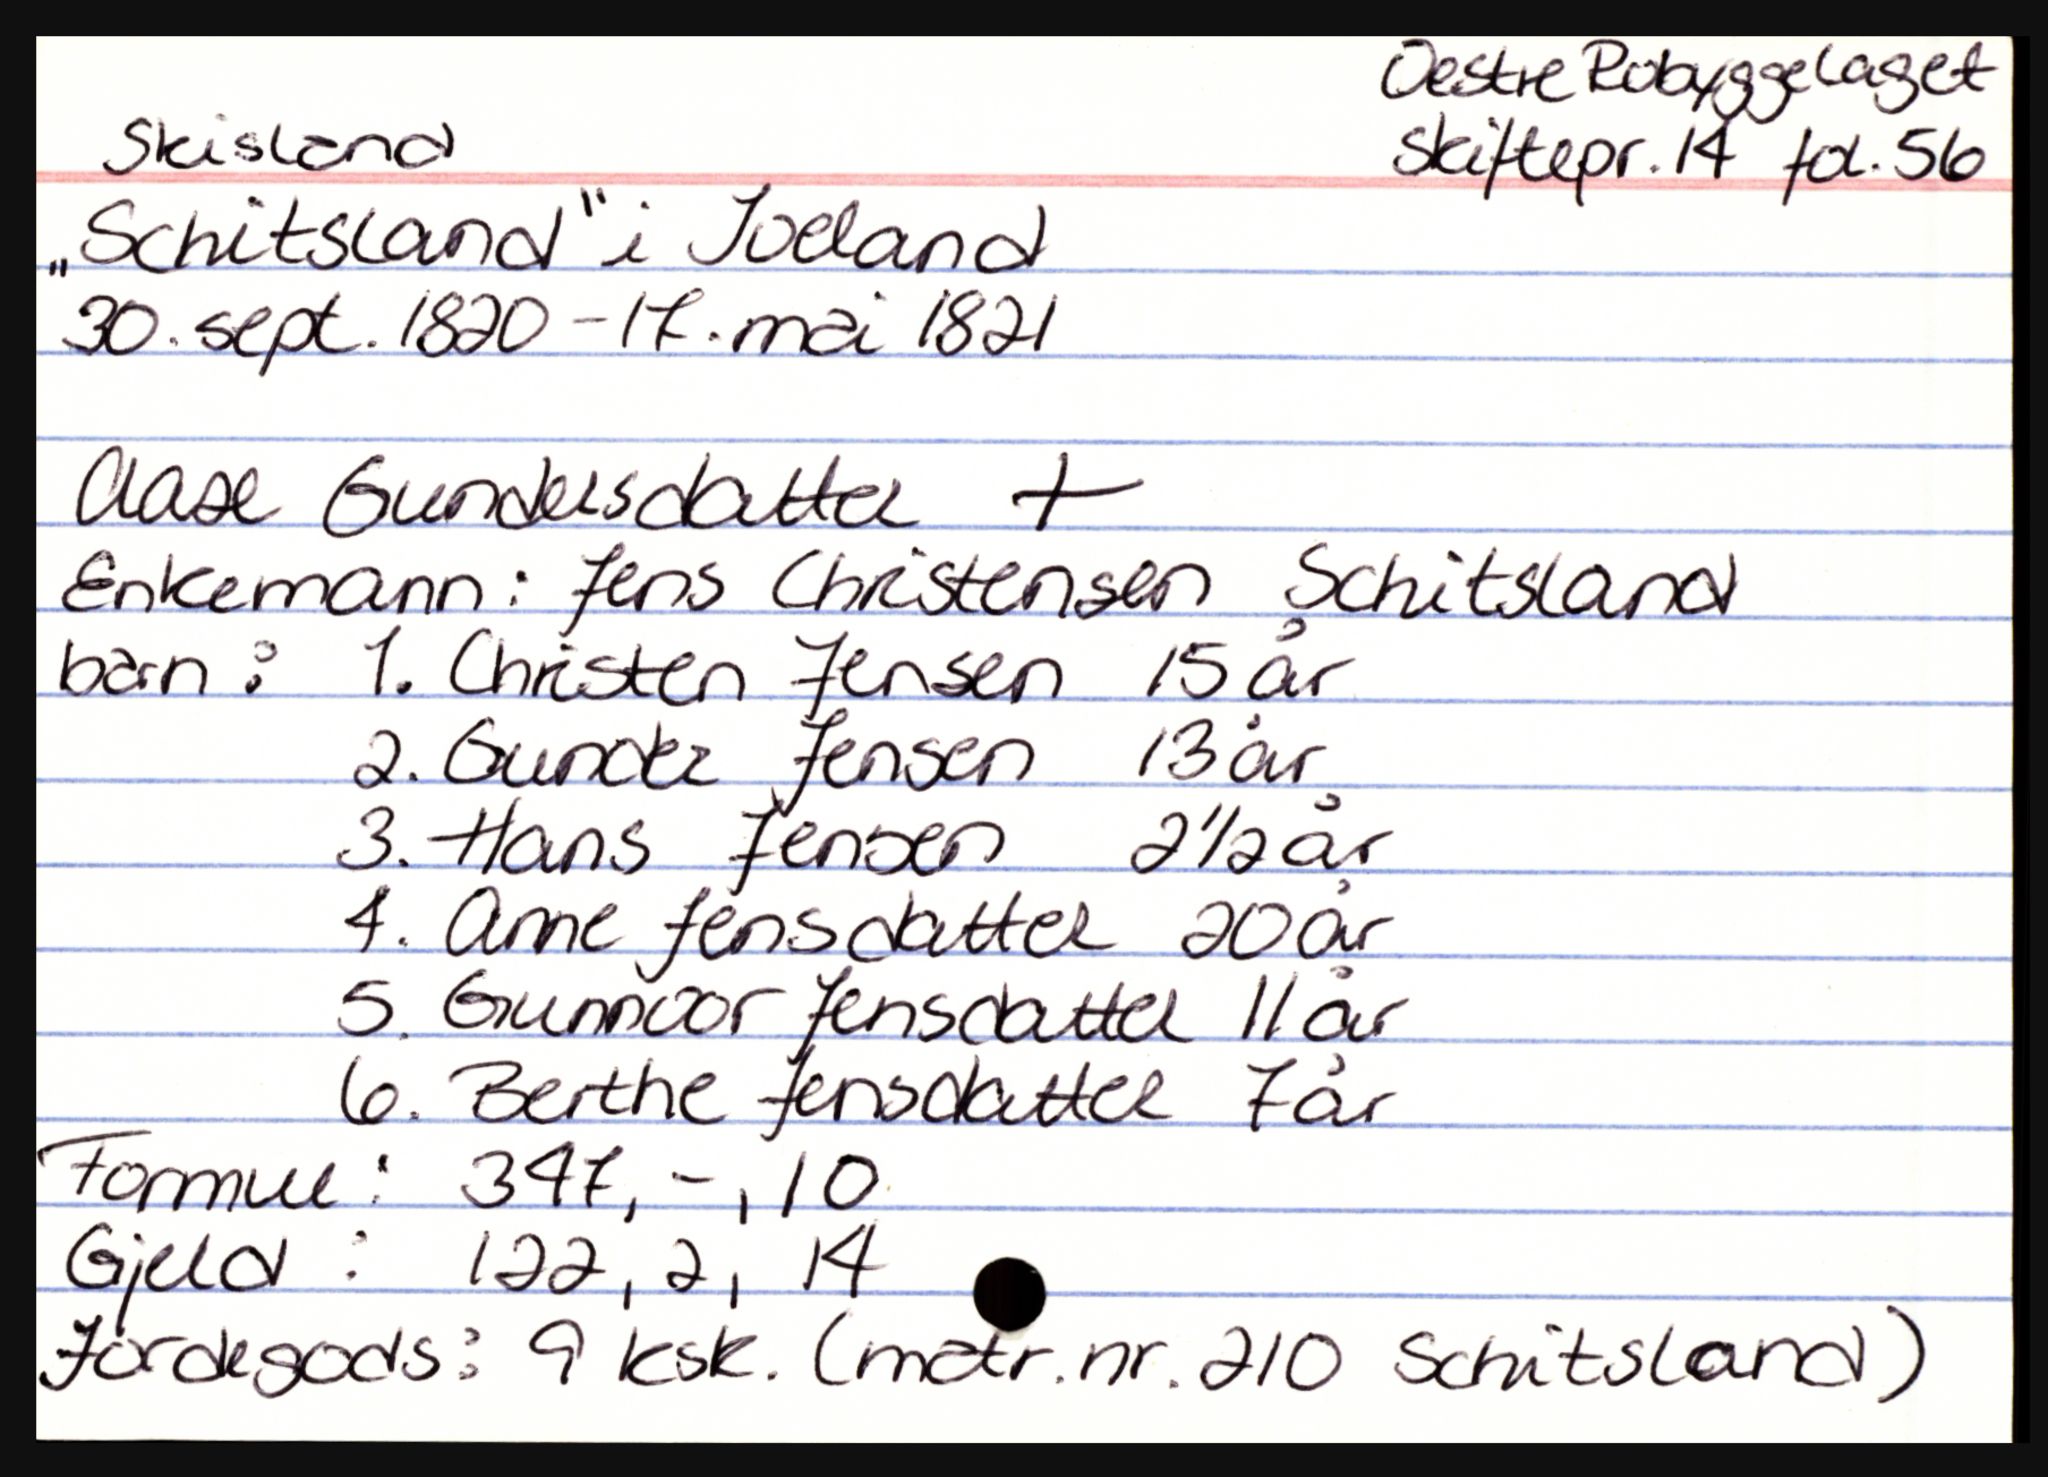 Oestre Robyggelaget
Skisland
skiftepr. 14 fol. 56
„Schitsland" i Joeland
30. sept. 1820 - 17. mai 1821
Aase Gundersdatter +
Enkemann: Jens Christensen Schitsland
barn: 1. Christen Jensen 15 år
2. Gunder Jensen 13 år
3. Hans Jensen 2 1/2 år
4. Anne Jensdatter 20 år
5. Gunnvor Jensdatter 11 år
6. Berthe Jensdatter 7 år
Formue: 347, -, 10
Gjeld: 122, 2, 14
Jordegods: 9 ksk. (matr. nr. 210 Schitsland)